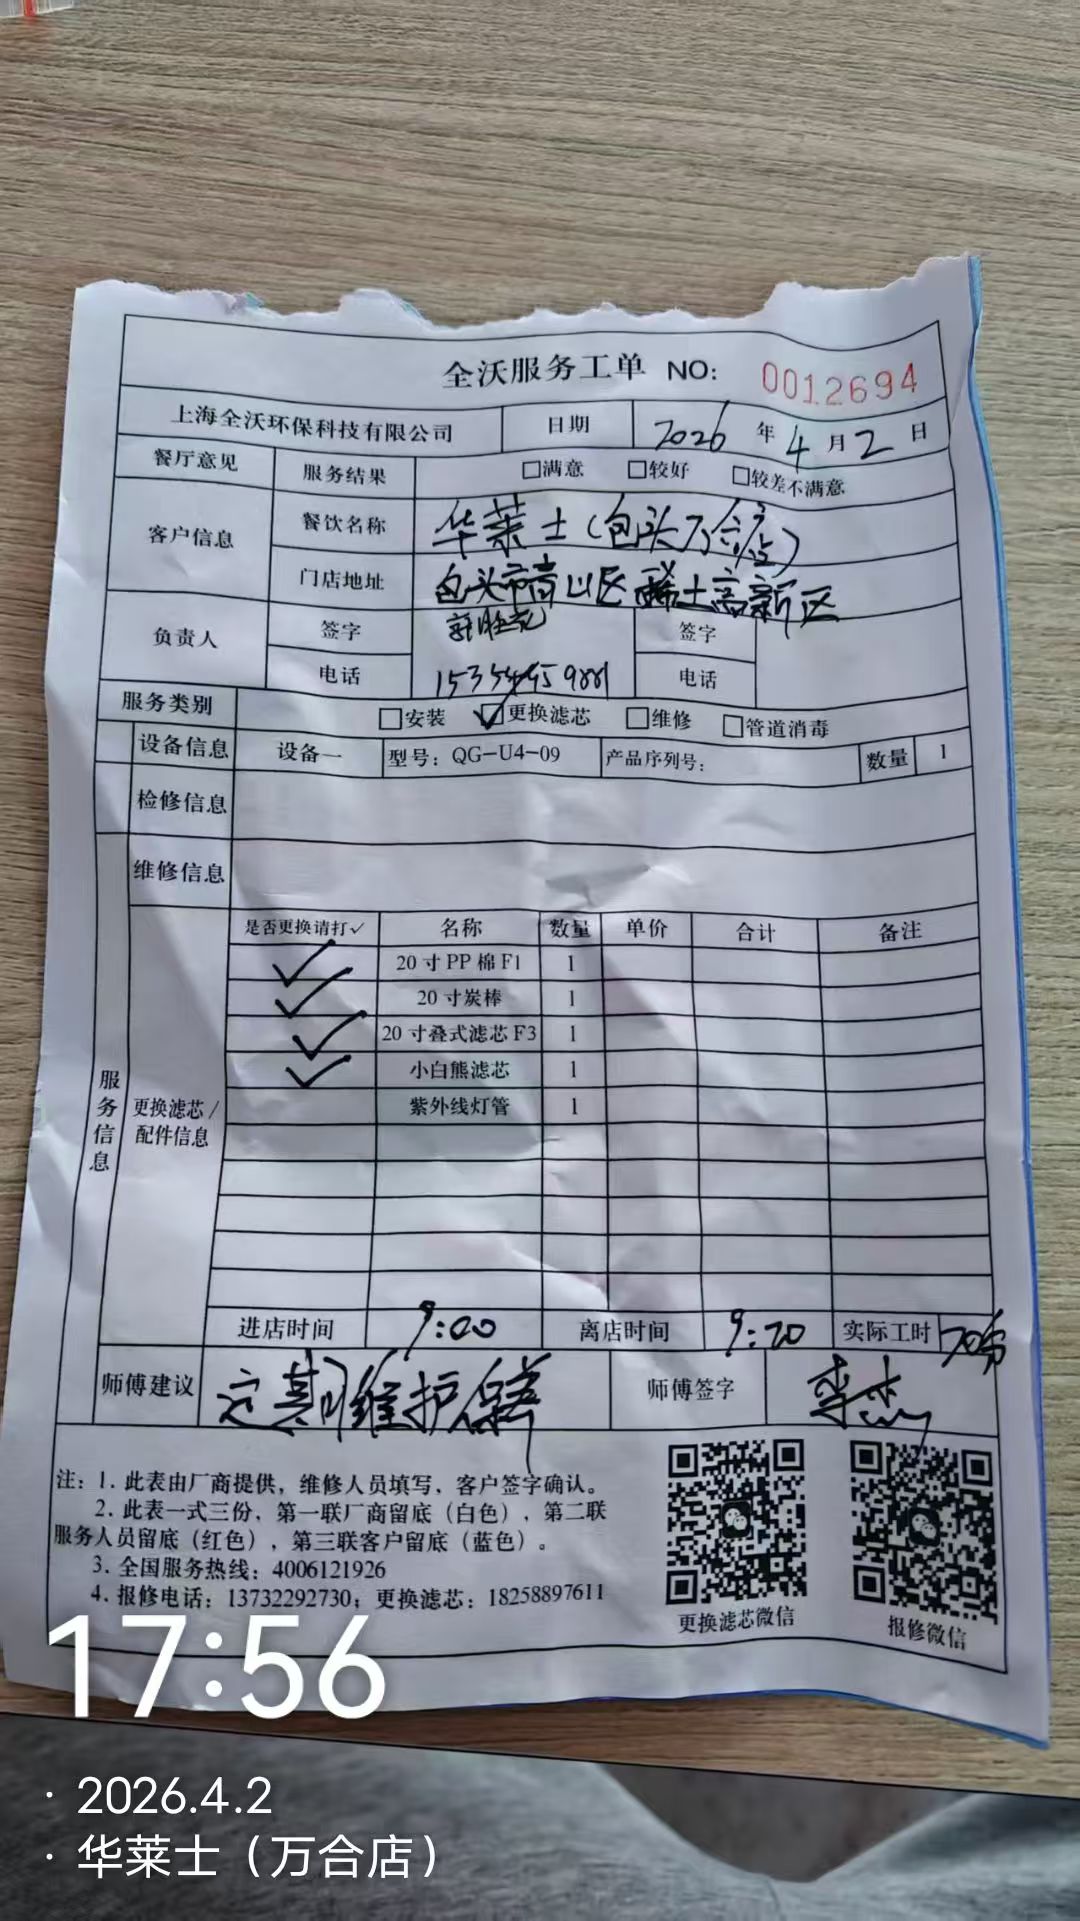 全沃服务工单 NO: 0012694
上海全沃环保科技有限公司 日期 2026 年 4 月 2 日
餐厅意见 服务结果 □满意 □较好 □较差不满意
客户信息 餐饮名称 华莱士(包头万合店)
门店地址 包头市青山区稀土高新区
负责人 签字 签字
电话 电话
服务类别 □安装 ☑更换滤芯 □维修 □管道消毒
设备信息 设备一 型号: QG-U4-09 产品序列号: 数量 1
检修信息
维修信息
服务信息
更换滤芯/配件信息
是否更换请打✓ 名称 数量 单价 合计 备注
✓ 20寸PP棉F1 1
✓ 20寸炭棒 1
✓ 20寸叠式滤芯F3 1
✓ 小白熊滤芯 1
紫外线灯管 1
进店时间 9:00 离店时间 9:20 实际工时 20分
师傅建议 定期维护保养 师傅签字 李杰
注: 1. 此表由厂商提供, 维修人员填写、客户签字确认。
2. 此表一式三份, 第一联厂商留底(白色), 第二联
服务人员留底(红色), 第三联客户留底(蓝色)。
3. 全国服务热线: 4006121926
4. 报修电话: 13732292730; 更换滤芯: 18258897611
更换滤芯微信 报修微信
17:56
· 2026.4.2
· 华莱士（万合店）